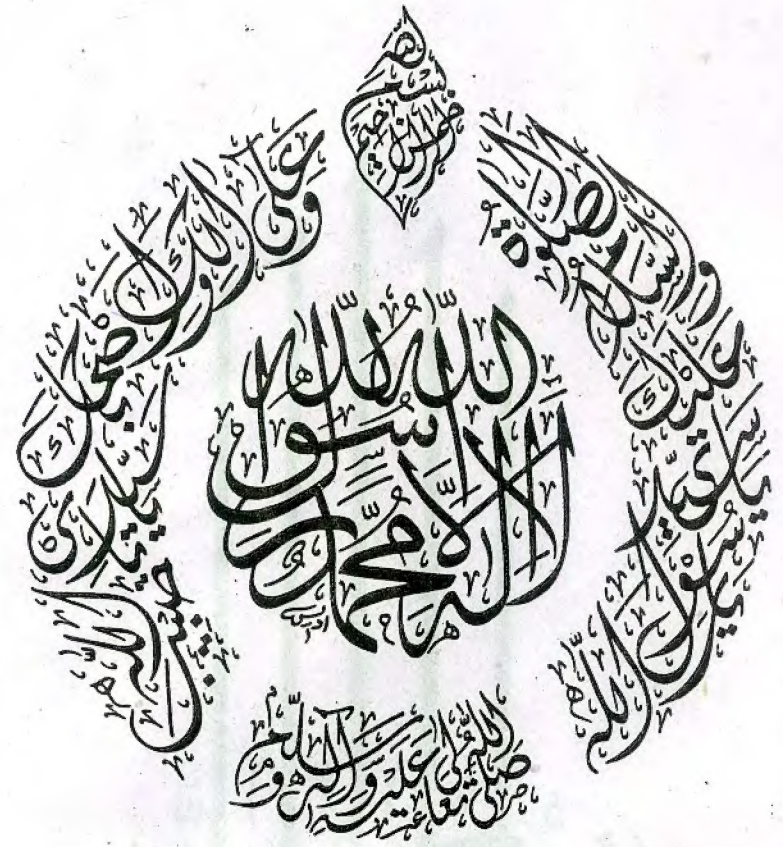 بسم الله الرحمن الرحيم
الصلوة والسلام عليك يا سيدي يا رسول الله
وعلى آلك وأصحابك يا سيدي يا حبيب الله
لا إله إلا الله محمد رسول الله
صلى الله تعالى عليه وآله وسلم